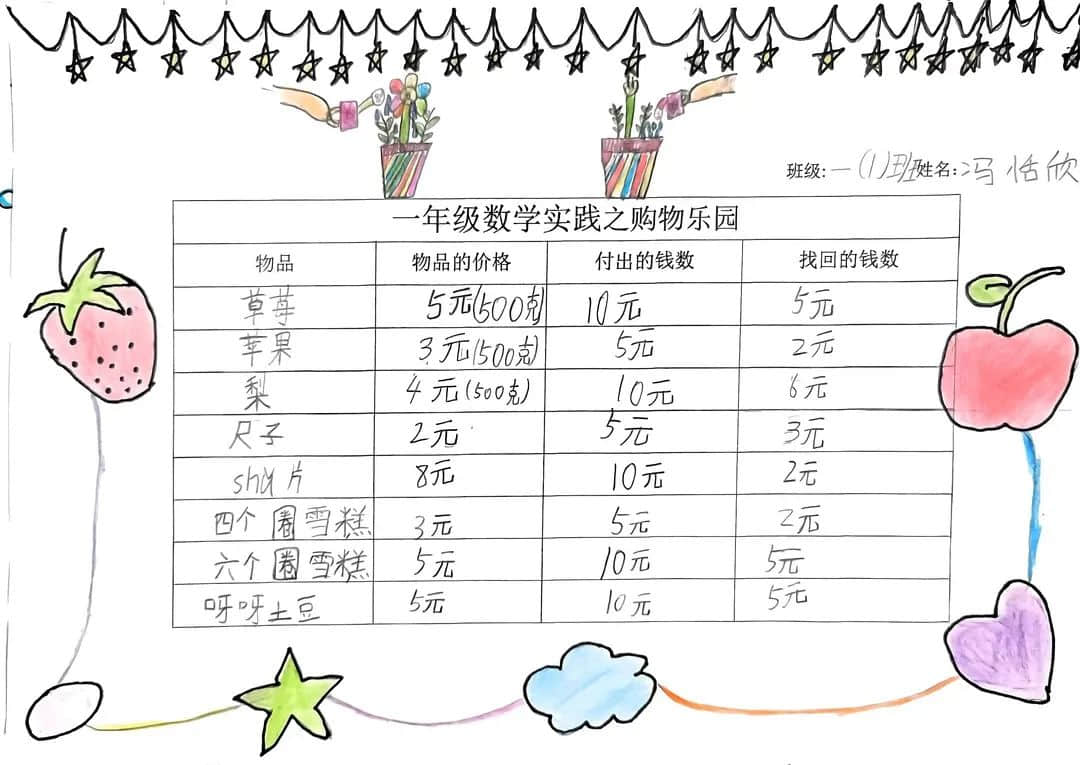 班级:一(1)班姓名:冯恬欣
一年级数学实践之购物乐园
物品 物品的价格 付出的钱数 找回的钱数
草莓 5元(500克) 10元 5元
苹果 3元(500克) 5元 2元
梨 4元(500克) 10元 6元
尺子 2元 5元 3元
shǔ片 8元 10元 2元
四个圈雪糕 3元 5元 2元
六个圈雪糕 5元 10元 5元
呀呀土豆 5元 10元 5元